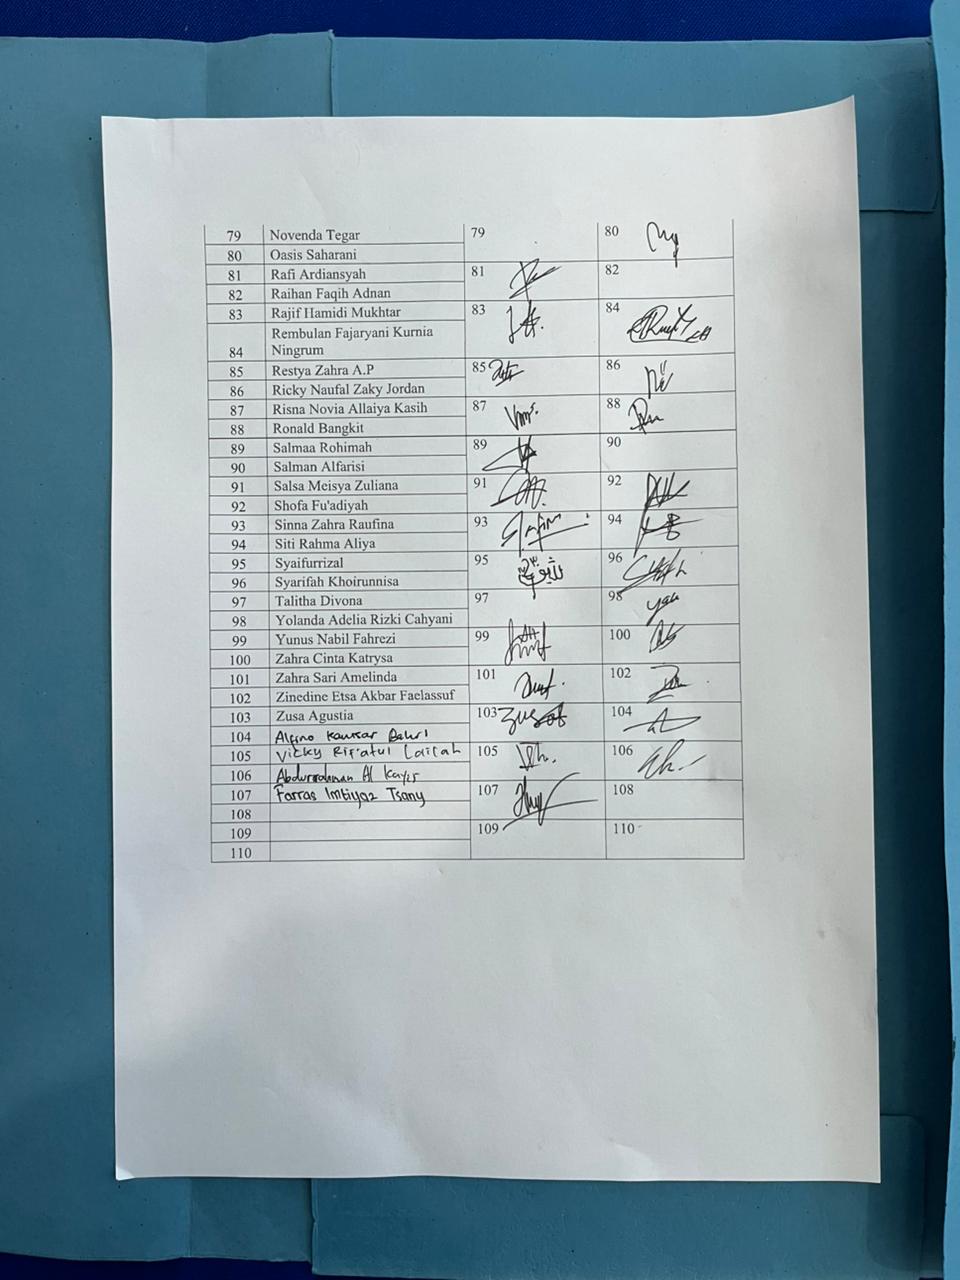 79 Novenda Tegar 79 80
80 Oasis Saharani
81 Rafi Ardiansyah 81 82
82 Raihan Faqih Adnan
83 Rajif Hamidi Mukhtar 83 84
84 Rembulan Fajaryani Kurnia
Ningrum
85 Restya Zahra A.P 85 86
86 Ricky Naufal Zaky Jordan
87 Risna Novia Allaiya Kasih 87 88
88 Ronald Bangkit
89 Salmaa Rohimah 89 90
90 Salman Alfarisi
91 Salsa Meisya Zuliana 91 92
92 Shofa Fu'adiyah
93 Sinna Zahra Raufina 93 94
94 Siti Rahma Aliya
95 Syaifurrizal 95 96
96 Syarifah Khoirunnisa
97 Talitha Divona 97 98
98 Yolanda Adelia Rizki Cahyani
99 Yunus Nabil Fahrezi 99 100
100 Zahra Cinta Katrysa
101 Zahra Sari Amelinda 101 102
102 Zinedine Etsa Akbar Faelassuf
103 Zusa Agustia 103 104
104 Alfino Kawsar Bahri
105 Vicky Rif'atul Lailah 105 106
106 Abdurrahman Al Kayis
107 Farras Imtiyaz Tsany 107 108
108
109 109 110
110